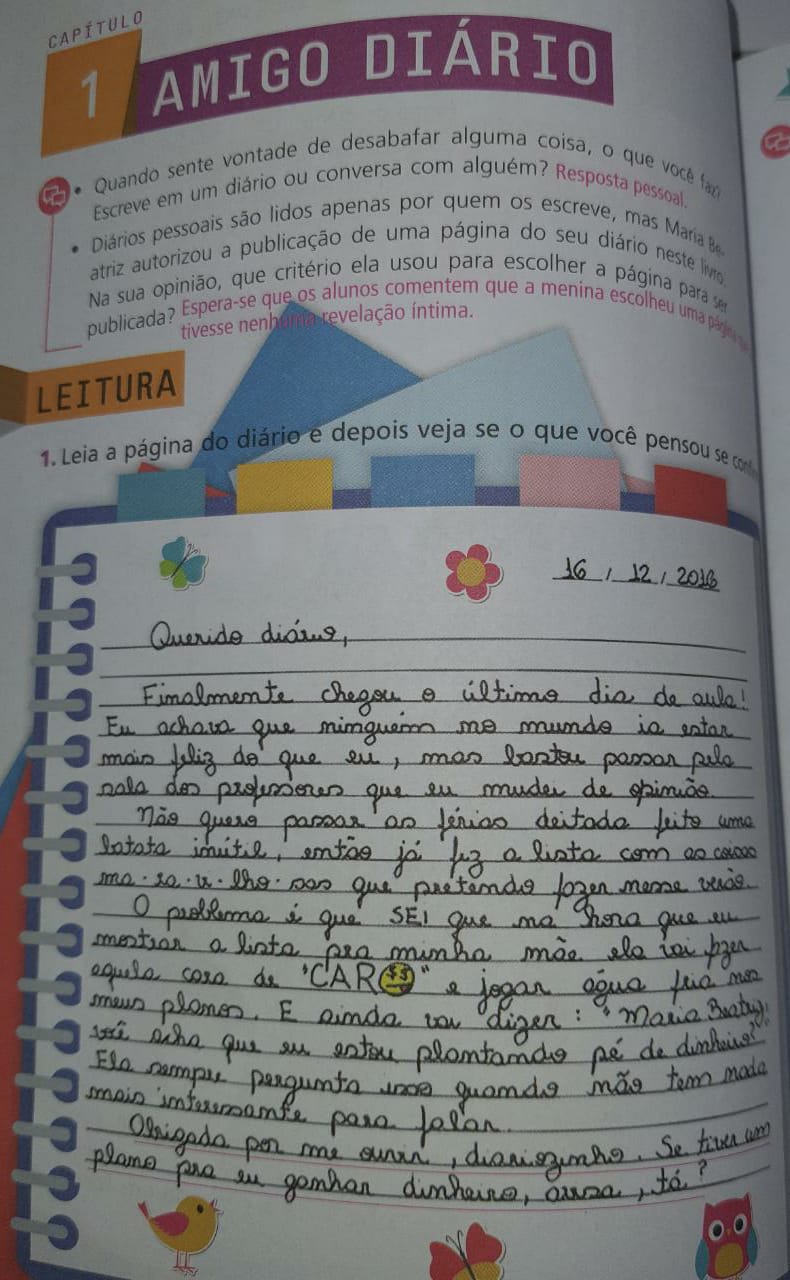 CAPÍTULO
1 AMIGO DIÁRIO
• Quando sente vontade de desabafar alguma coisa, o que você faz?
Escreve em um diário ou conversa com alguém? Resposta pessoal.
• Diários pessoais são lidos apenas por quem os escreve, mas Maria Be-
atriz autorizou a publicação de uma página do seu diário neste livro.
Na sua opinião, que critério ela usou para escolher a página para ser
publicada? Espera-se que os alunos comentem que a menina escolheu uma página
tivesse nenhuma revelação íntima.
LEITURA
1. Leia a página do diário e depois veja se o que você pensou se
16/12/2016
Querido diário,
Finalmente chegou o último dia de aula!
Eu achava que ninguém no mundo ia estar
mais feliz do que eu, mas bastou passar pela
sala dos professores que eu mudei de opinião.
Não quero passar as férias deitada feito uma
batata inútil, então já fiz a lista com as coisas
ma-ra-vi-lho-sas que pretendo fazer nesse verão.
O problema é que SEI que na hora que eu
mostrar a lista pra minha mãe ela vai fazer
aquela cara de "CARO" e jogar água fria nos
meus planos. E ainda vai dizer: "Maria Beatriz,
você acha que eu estou plantando pé de dinheiro?"
Ela sempre pergunta isso quando não tem nada
mais interessante para falar.
Obrigada por me ouvir, diariozinho. Se tiver um
plano pra eu ganhar dinheiro, avisa, tá?